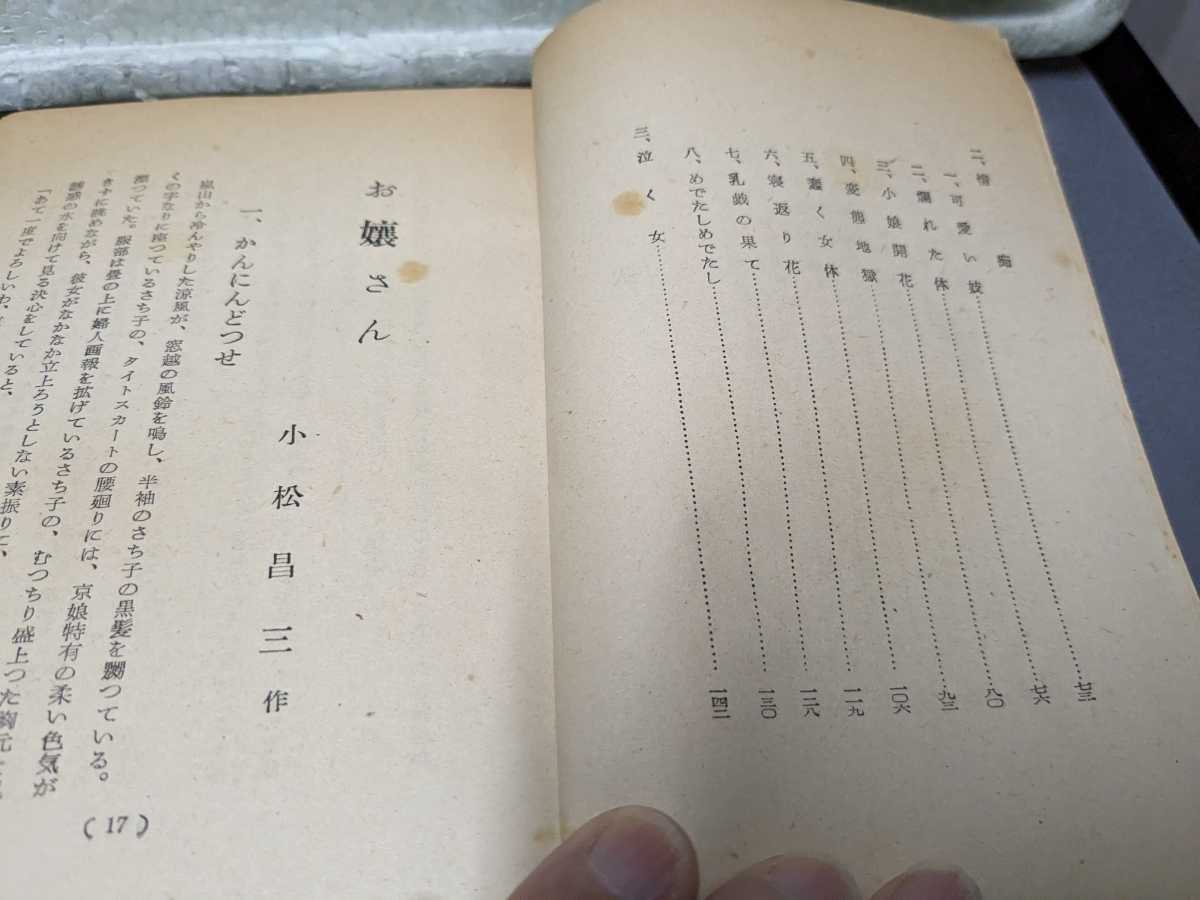 二、情痴
一、可愛い妓………七三
二、爛れた体………七六
三、小娘開花………八〇
四、変態地獄………九三
五、蠢く女体………一〇六
六、寝返り花………一一九
七、乳戯の果て………一二八
八、めでたしめでたし………一三〇
三、泣く女………一四二
お嬢さん
小松昌三作
一、かんにんどつせ
嵐山から冷んやりした涼風が、窓越の風鈴を鳴し、半袖のさち子の黒髪を嬲つている。
くの字なりに座つているさち子の、タイトスカートの腰廻りには、京娘特有の柔い色気が
漂つていた。服部は畳の上に婦人画報を拡げているさち子の、むつちり盛上つた胸元
に眺めながら、彼女がなかなか立上ろうとしない素振りに、
誘惑の水を向けて見る決心をしていると、
「あて一度でよろしいわ、
(17)